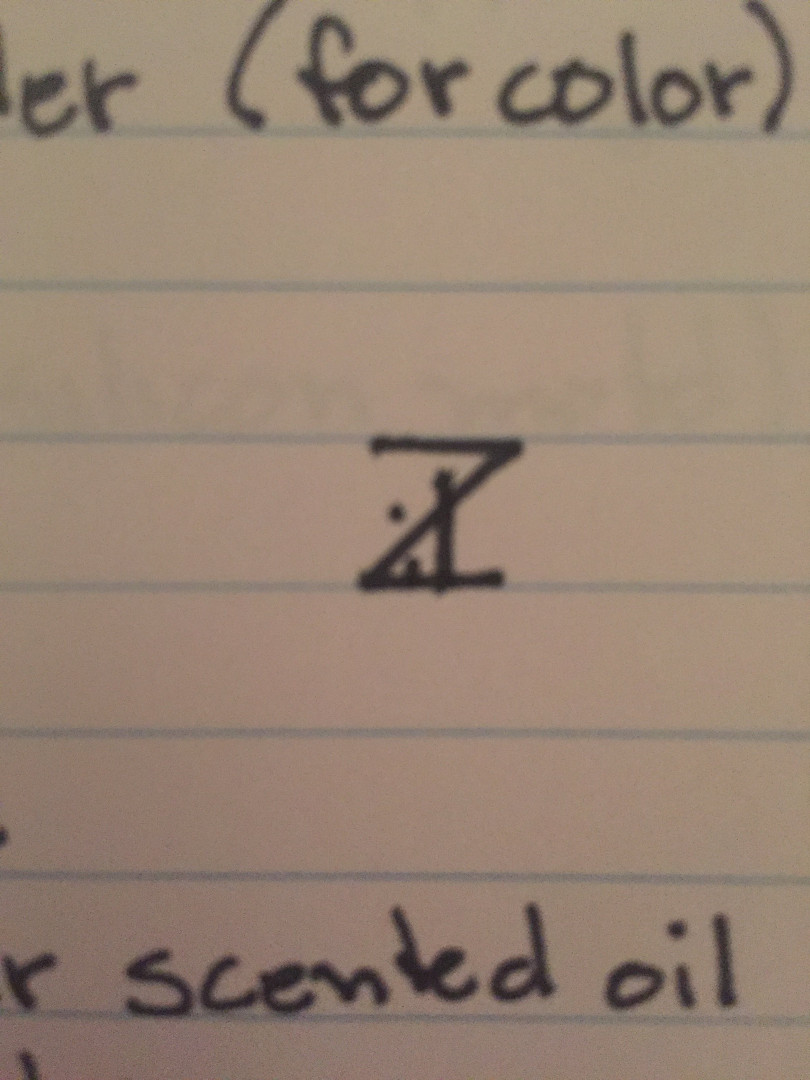 er (for color)
Z
r scented oil